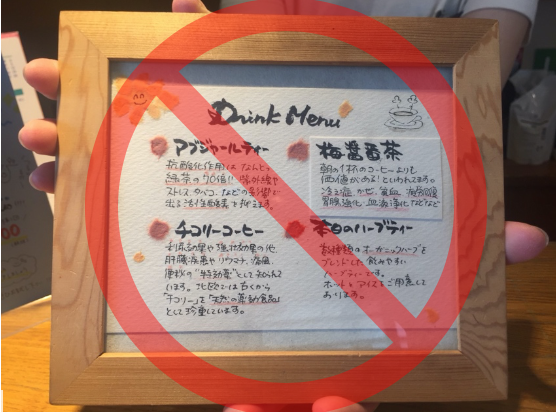 Drink Menu
アブジャールティー
抗酸化作用は なんと
緑茶の70倍!! 紫外線や
ストレス タバコ などの影響で
出る活性酸素を
梅醤番茶
朝の1杯のコーヒーよりも
価値がある!といわれてます。
冷え症 かぜ 貧血 疲労回復
胃腸強化 血液浄化 などなど
チコリーコーヒー
利尿効果や強壮効果の他
肝臓疾患や リウマチ、痛風、
"特効薬"として知られて
います。北欧では古くから
「チコリー」を「天然の薬効食品」
として珍重しています。
本日のハーブティー
数種類のオーガニックハーブを
ブレンドした飲みやすい
ハーブティーです。
ホットとアイスをご用意して
おります。